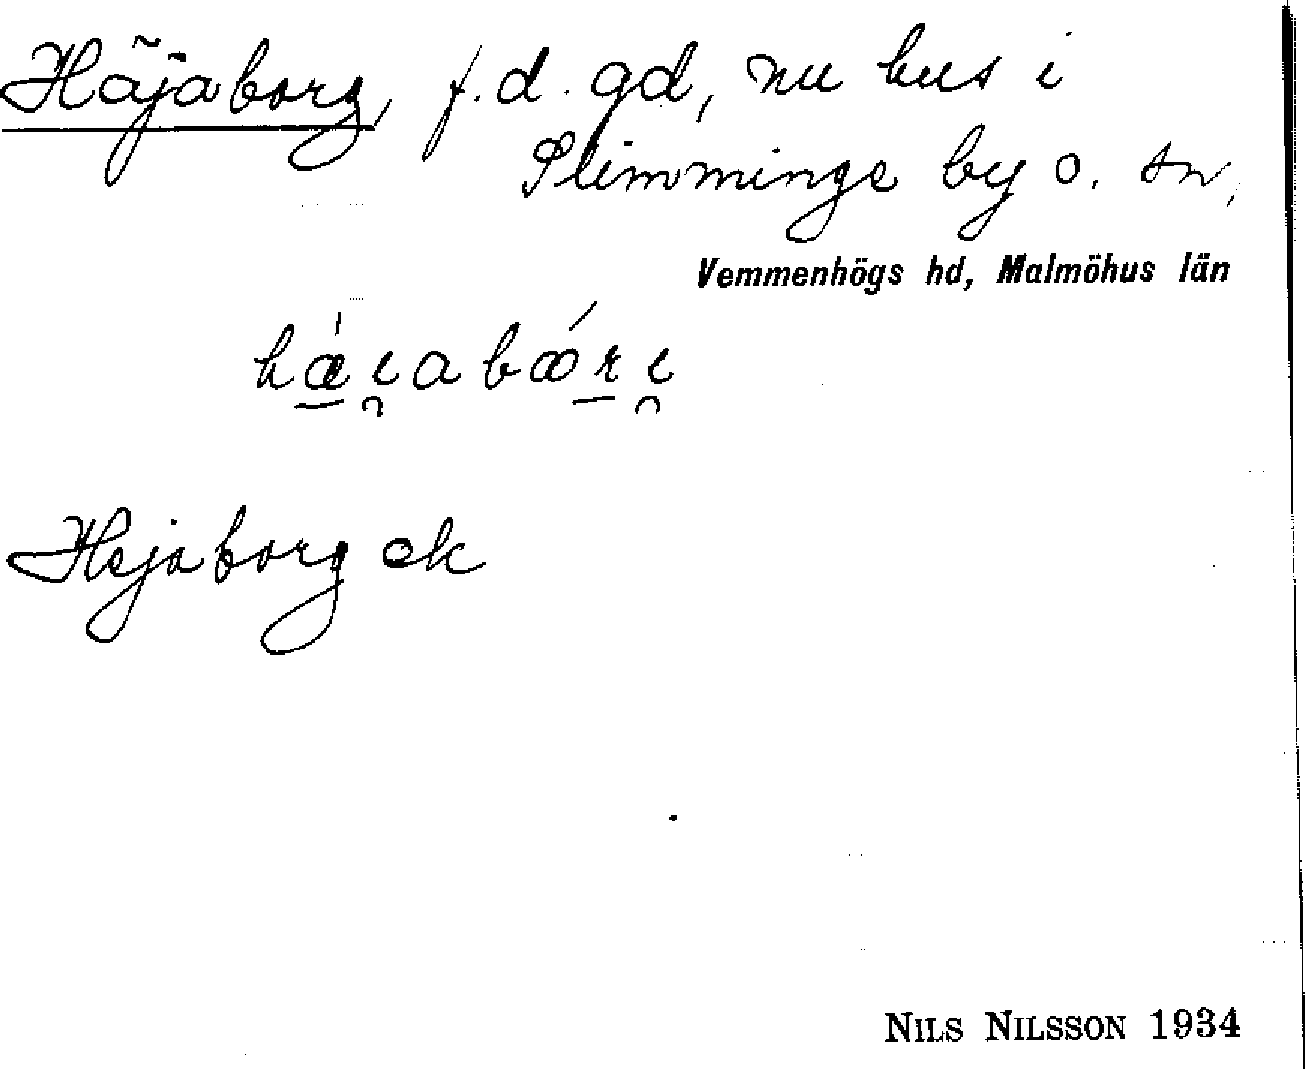 Häjaborg, f.d. gd, nu hus i
Slimminge by o. sn,
Vemmenhögs hd, Malmöhus län
Hejaborg ek
NILS NILSSON 1934